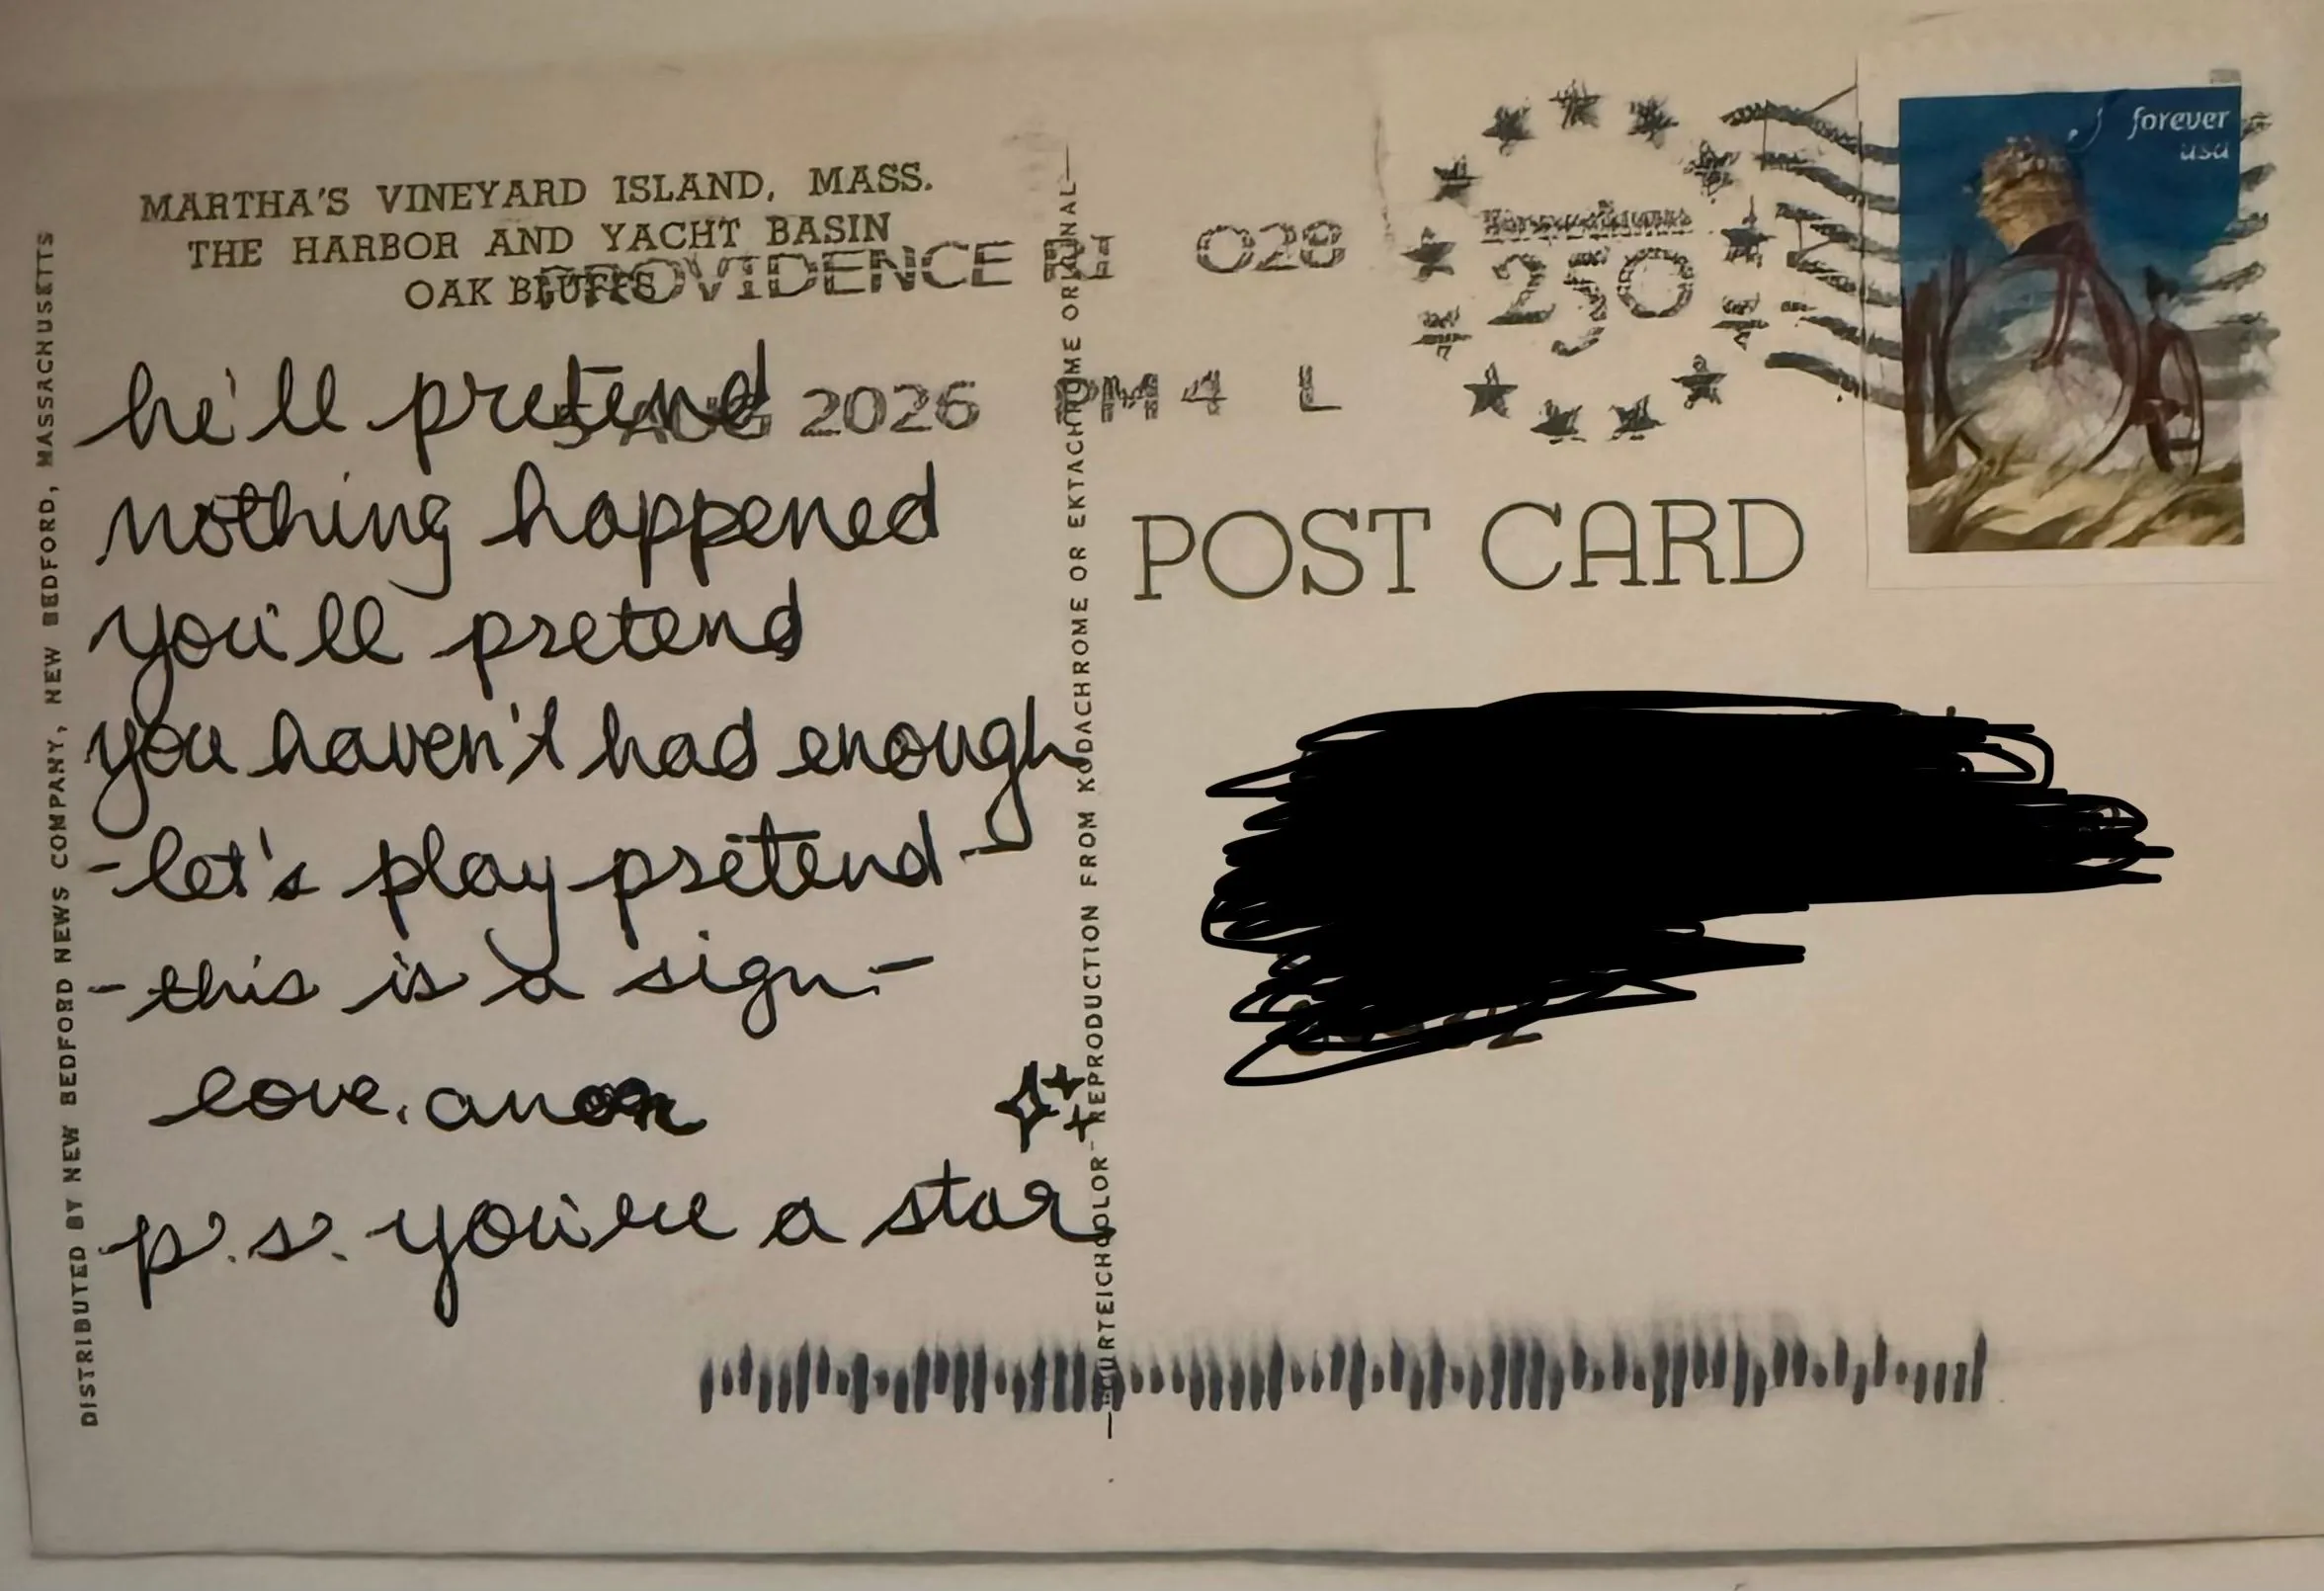 MARTHA'S VINEYARD ISLAND, MASS.
THE HARBOR AND YACHT BASIN
OAK BLUFFS
PROVIDENCE RI 028
5 AUG 2026 PM 4 L
250
forever
usa
he'll pretend
nothing happened
you'll pretend
you haven't had enough
-let's play pretend-
-this is a sign-
love, anon
p.s. you're a star
POST CARD
DISTRIBUTED BY NEW BEDFORD NEWS COMPANY, NEW BEDFORD, MASSACHUSETTS
—CURTEICHCOLOR- REPRODUCTION FROM KODACHROME OR EKTACHROME ORIGINAL—